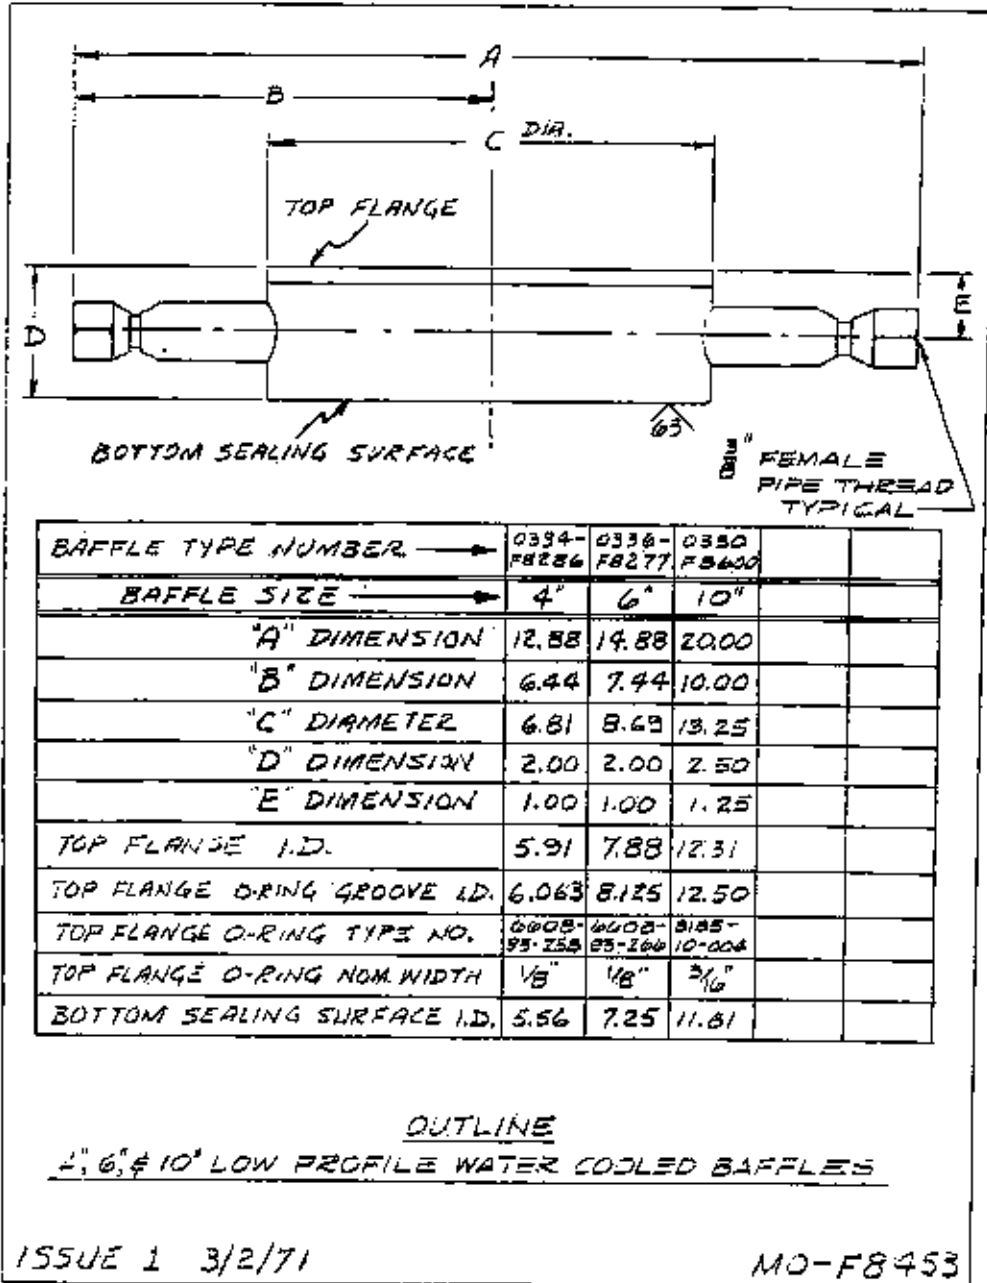 A
B
C DIA.
TOP FLANGE
D
E
63
BOTTOM SEALING SURFACE
" FEMALE
PIPE THREAD
TYPICAL
BAFFLE TYPE NUMBER 0334-F8286 0336-F8277
BAFFLE SIZE 4" 6" 10"
"A" DIMENSION 12.88 14.88 20.00
"B" DIMENSION 6.44 7.44 10.00
"C" DIAMETER 6.81 8.69 13.25
"D" DIMENSION 2.00 2.00 2.50
"E" DIMENSION 1.00 1.00 1.25
TOP FLANGE I.D. 5.91 7.88 12.31
TOP FLANGE O-RING GROOVE I.D. 6.063 8.125 12.50
TOP FLANGE O-RING TYPE NO.
TOP FLANGE O-RING NOM. WIDTH 1/8" 1/8" 3/16"
BOTTOM SEALING SURFACE I.D. 5.56 7.25 11.81
OUTLINE
4", 6", & 10" LOW PROFILE WATER COOLED BAFFLES
ISSUE 1 3/2/71
MO-F8453